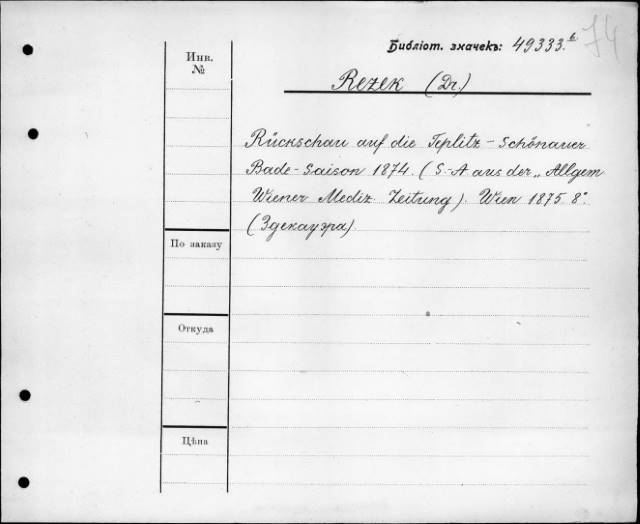 Библіот. значекъ: 49333.б 74
Инв.
№
Rezek (Dr.)
Rückschau auf die Teplitz-Schönauer
Bade-Saison 1874. (S.-A aus der „Allgem
Wiener Mediz. Zeitung). Wien 1875. 8°.
(Здекауэра)
По заказу
Откуда
Цѣна